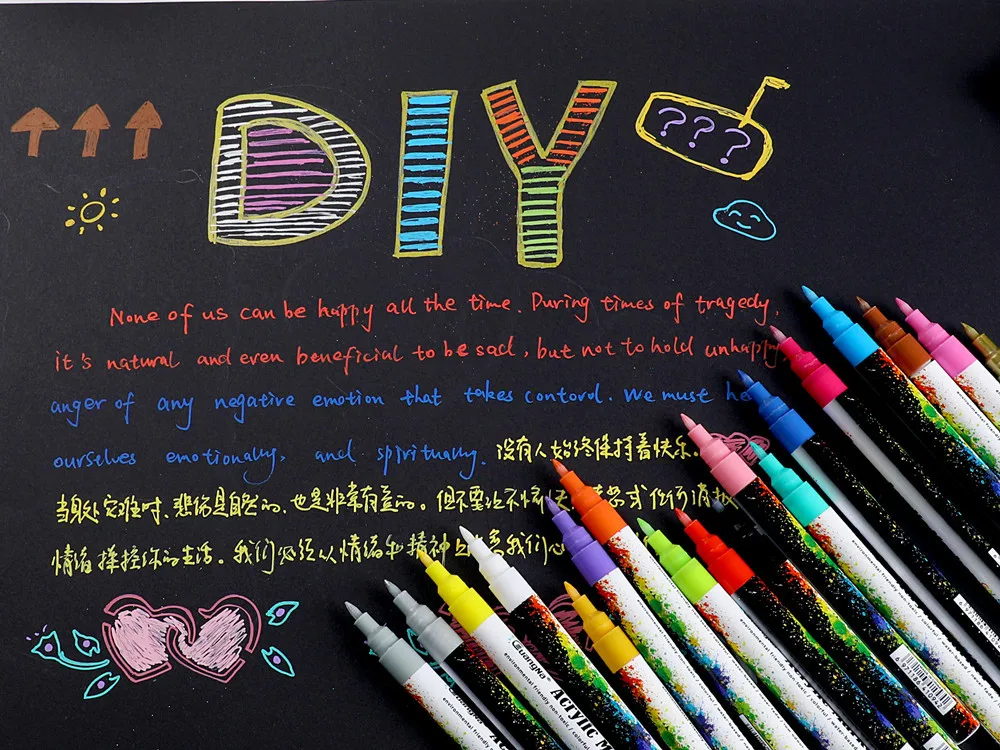 DIY
? ? ?
None of us can be happy all the time. During times of tragedy,
it's natural and even beneficial to be sad, but not to hold unhappy
anger of any negative emotion that takes contord. We must he
ourselves emotionally, and spiritually. 没有人始终保持着快乐。
当身处灾难时、悲伤是自然的、也是非常有益的。但不要让不愉
情绪操控你的生活。我们必须从情绪和精神上 我们心
GuangNa
environmental friendly non-toxic / colorful
Acrylic M